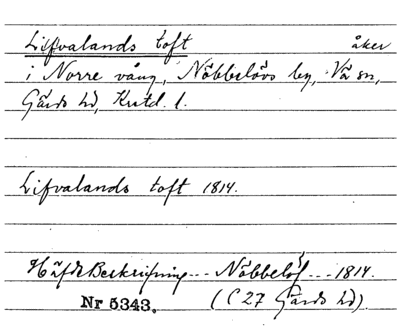 Lifvalands toft åker
i Norre vång, Nöbbelövs by, Vä sn,
Gärds hd, Kristd. l.
Lifvalands toft 1814.
Häfde Beskrifning --- Nöbbelöf --- 1814.
Nr 5343. (C 27 Gärds hd).